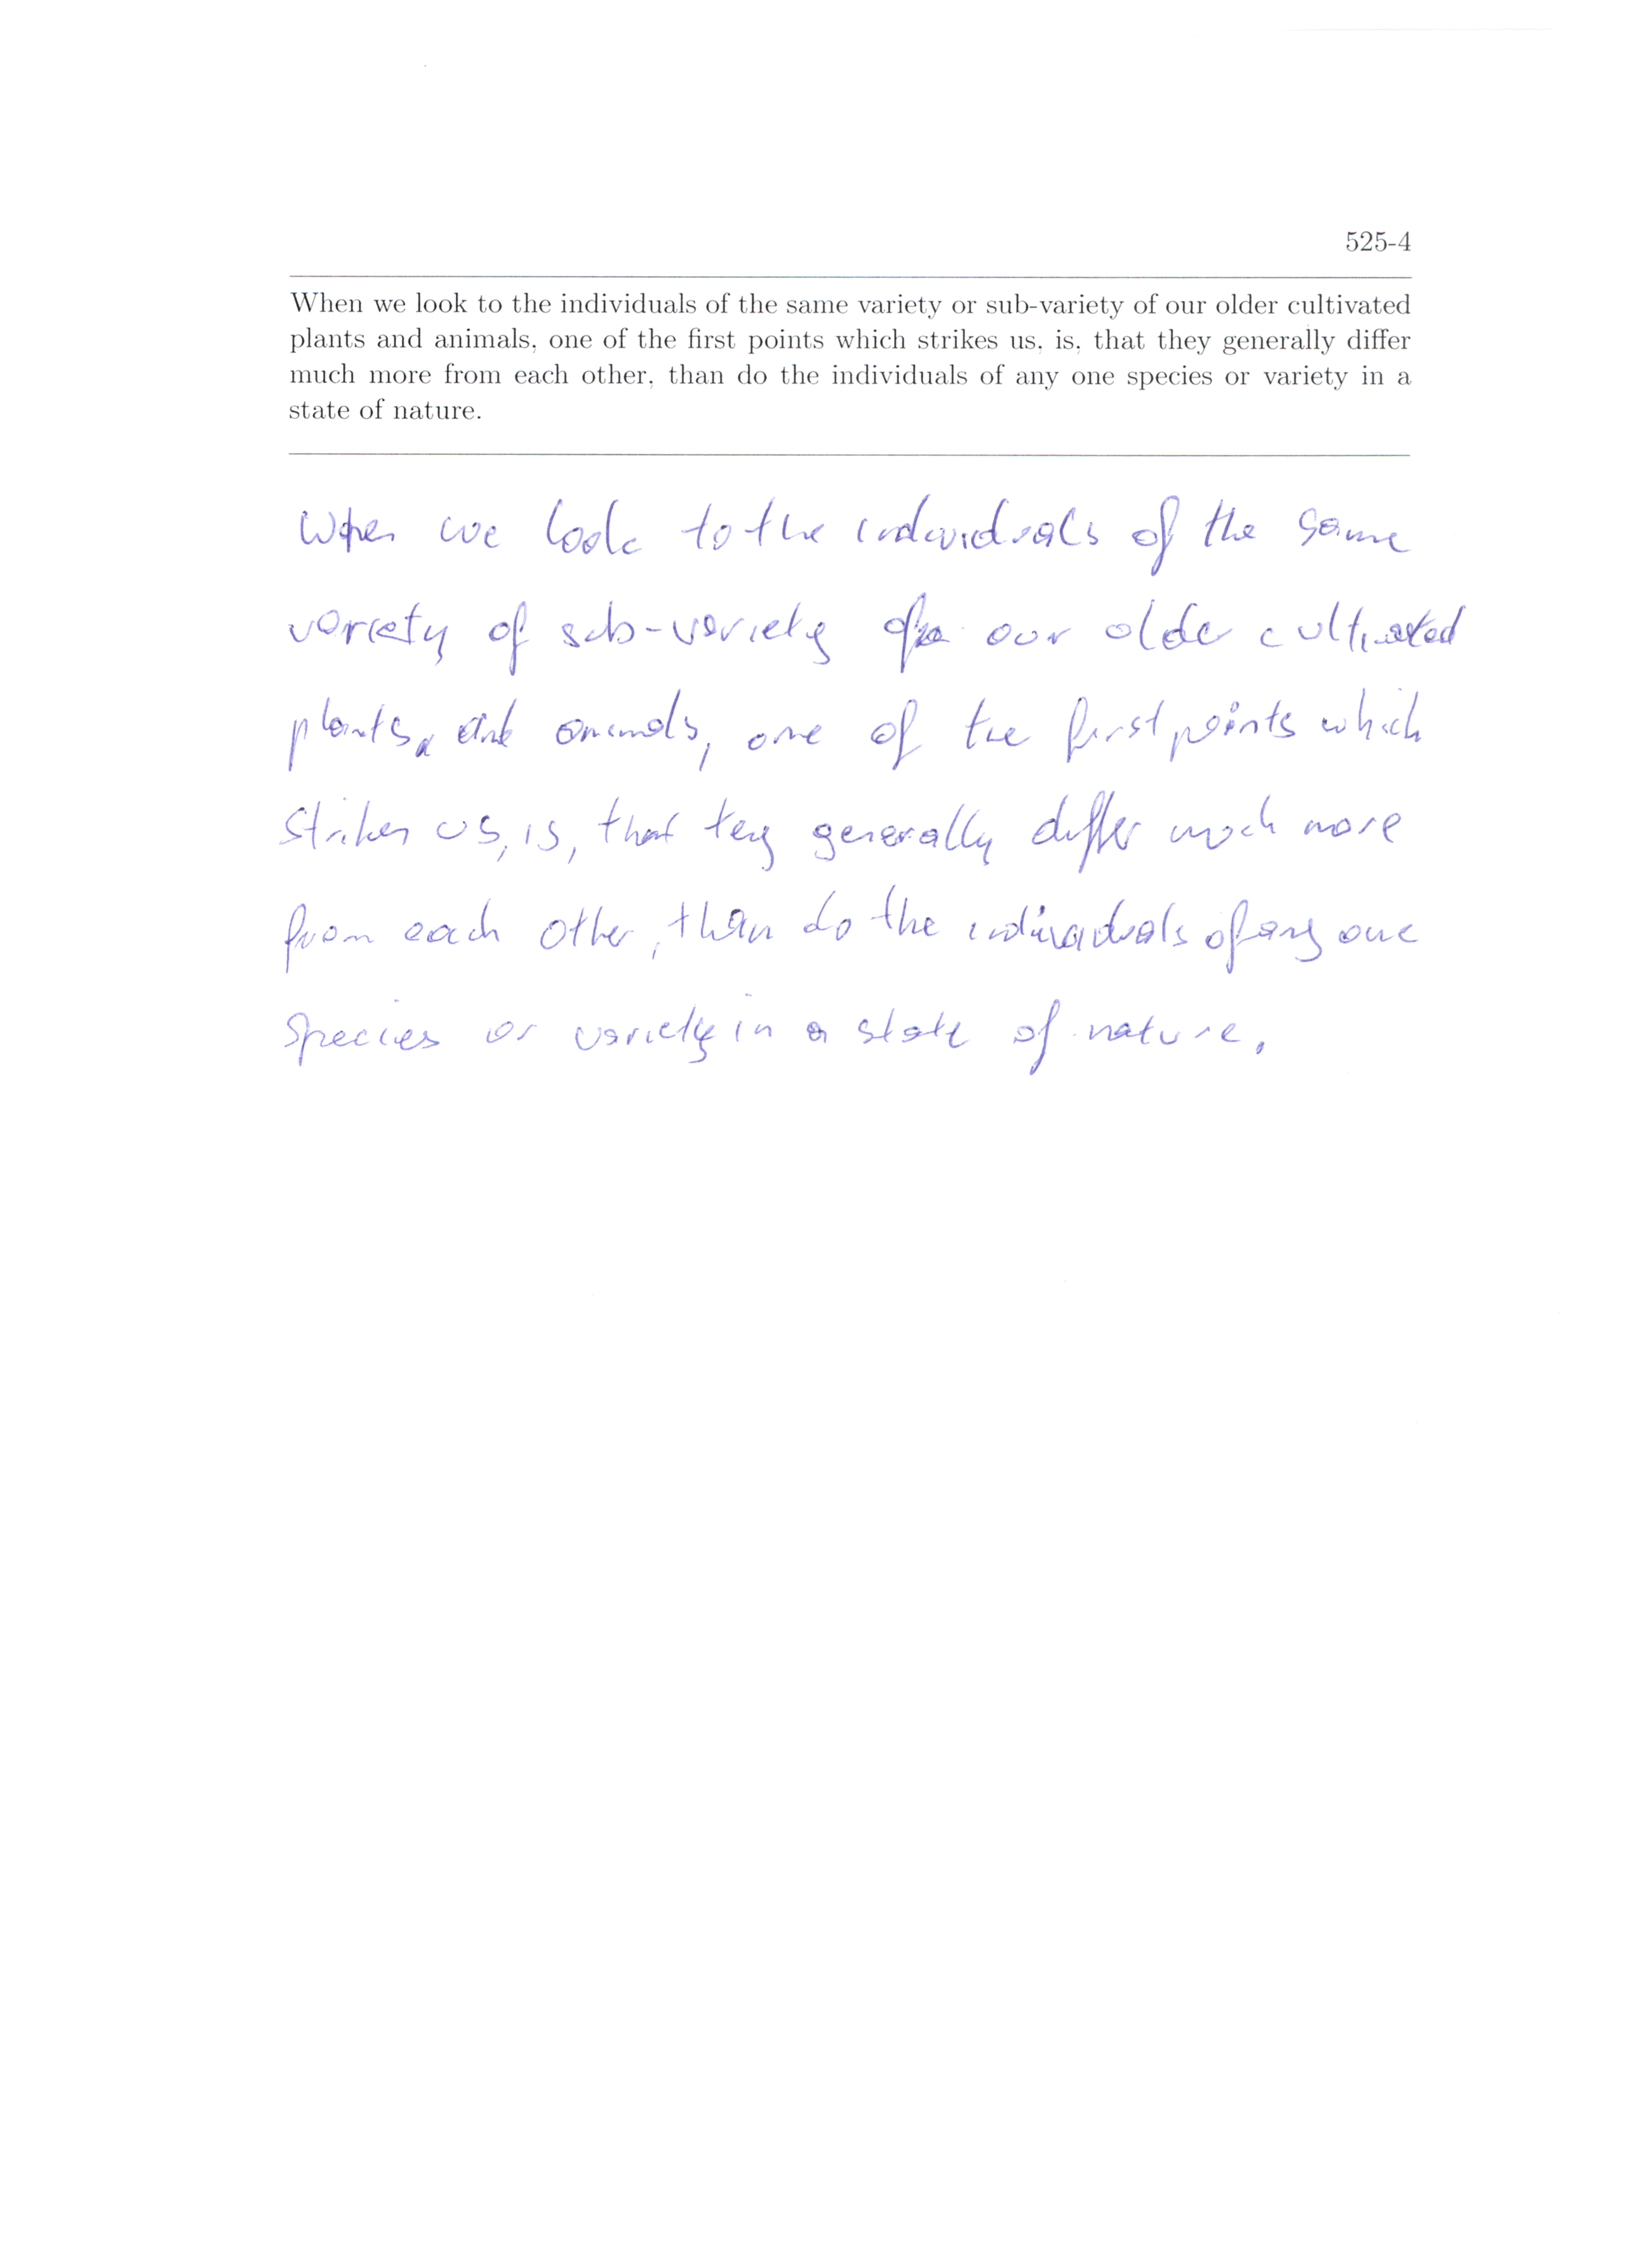 525-4
When we look to the individuals of the same variety or sub-variety of our older cultivated
plants and animals, one of the first points which strikes us, is, that they generally differ
much more from each other, than do the individuals of any one species or variety in a
state of nature.
When we look to the individuals of the same
variety of sub-variety of our older cultivated
plants, and animals, one of the first points which
strikes us, is, that tey generally differ much more
from each other, than do the individuals of any one
species or variety in a state of nature.